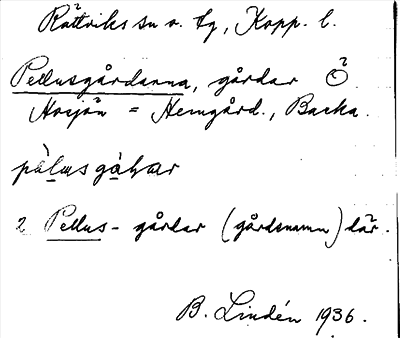 Rättviks sn o. tg, Kopp. l.
Pellusgårdarna, gårdar Ö
Hosjön = Hemgård., Backa
pàlusgàhar
2 Pellus- gårdar (gårdsnamn) där.
B. Lindén 1936.